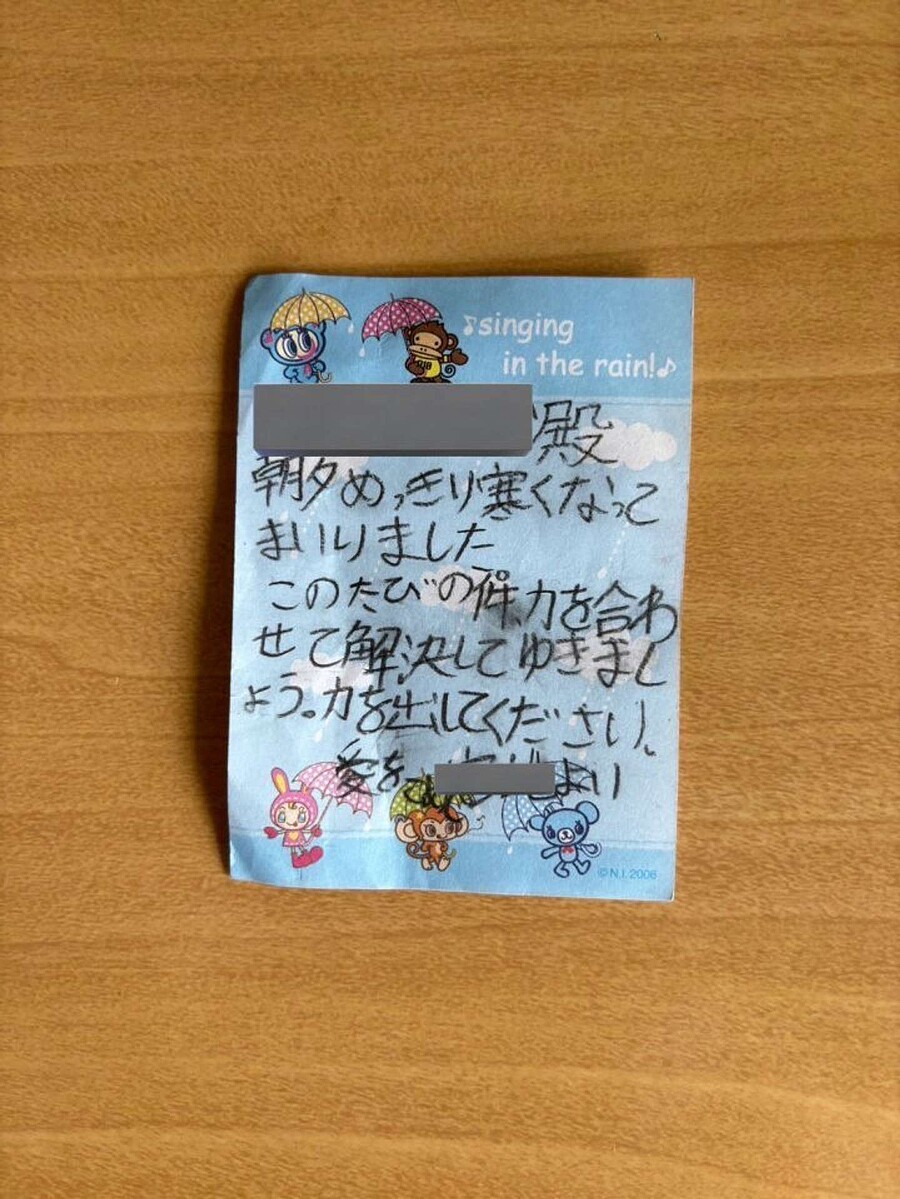 ♪singing
in the rain!♪
殿
朝夕めっきり寒くなって
まいりました
このたびの件、力を合わ
せて解決してゆきまし
ょう。力を出してください。
愛を より
©N.I.2006